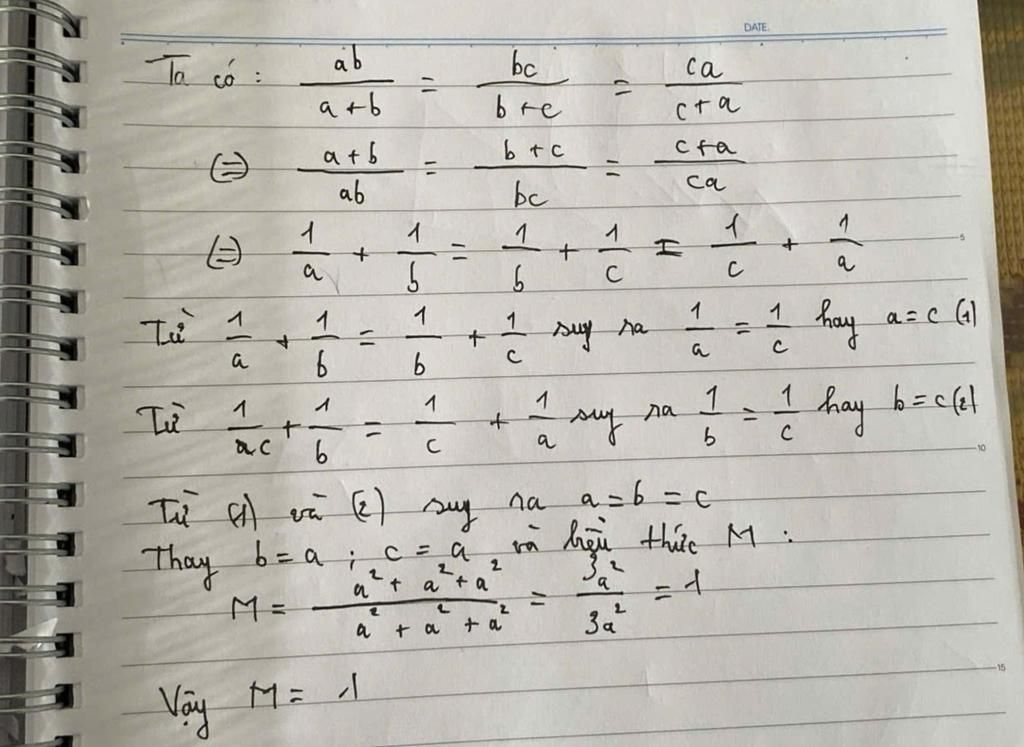 DATE.
Ta có: ab/(a+b) = bc/(b+c) = ca/(c+a)
(=) (a+b)/ab = (b+c)/bc = (c+a)/ca
(=) 1/a + 1/b = 1/b + 1/c = 1/c + 1/a
5
Từ 1/a + 1/b = 1/b + 1/c suy ra 1/a = 1/c hay a = c (1)
Từ 1/ac + 1/b = 1/c + 1/a suy ra 1/b = 1/c hay b = c (2)
10
Từ (1) và (2) suy ra a = b = c
Thay b = a ; c = a và biểu thức M :
M = (a² + a² + a²)/(a² + a² + a²) = 3a²/3a² = 1
15
Vậy M = 1